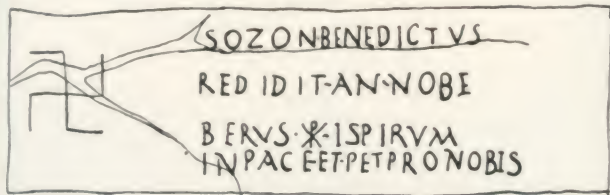 SOZONBENEDICTVS
REDIDIT·AN·NOBE
BERVS·☧·ISPIRVM
INPACE·ET·PETPRONOBIS